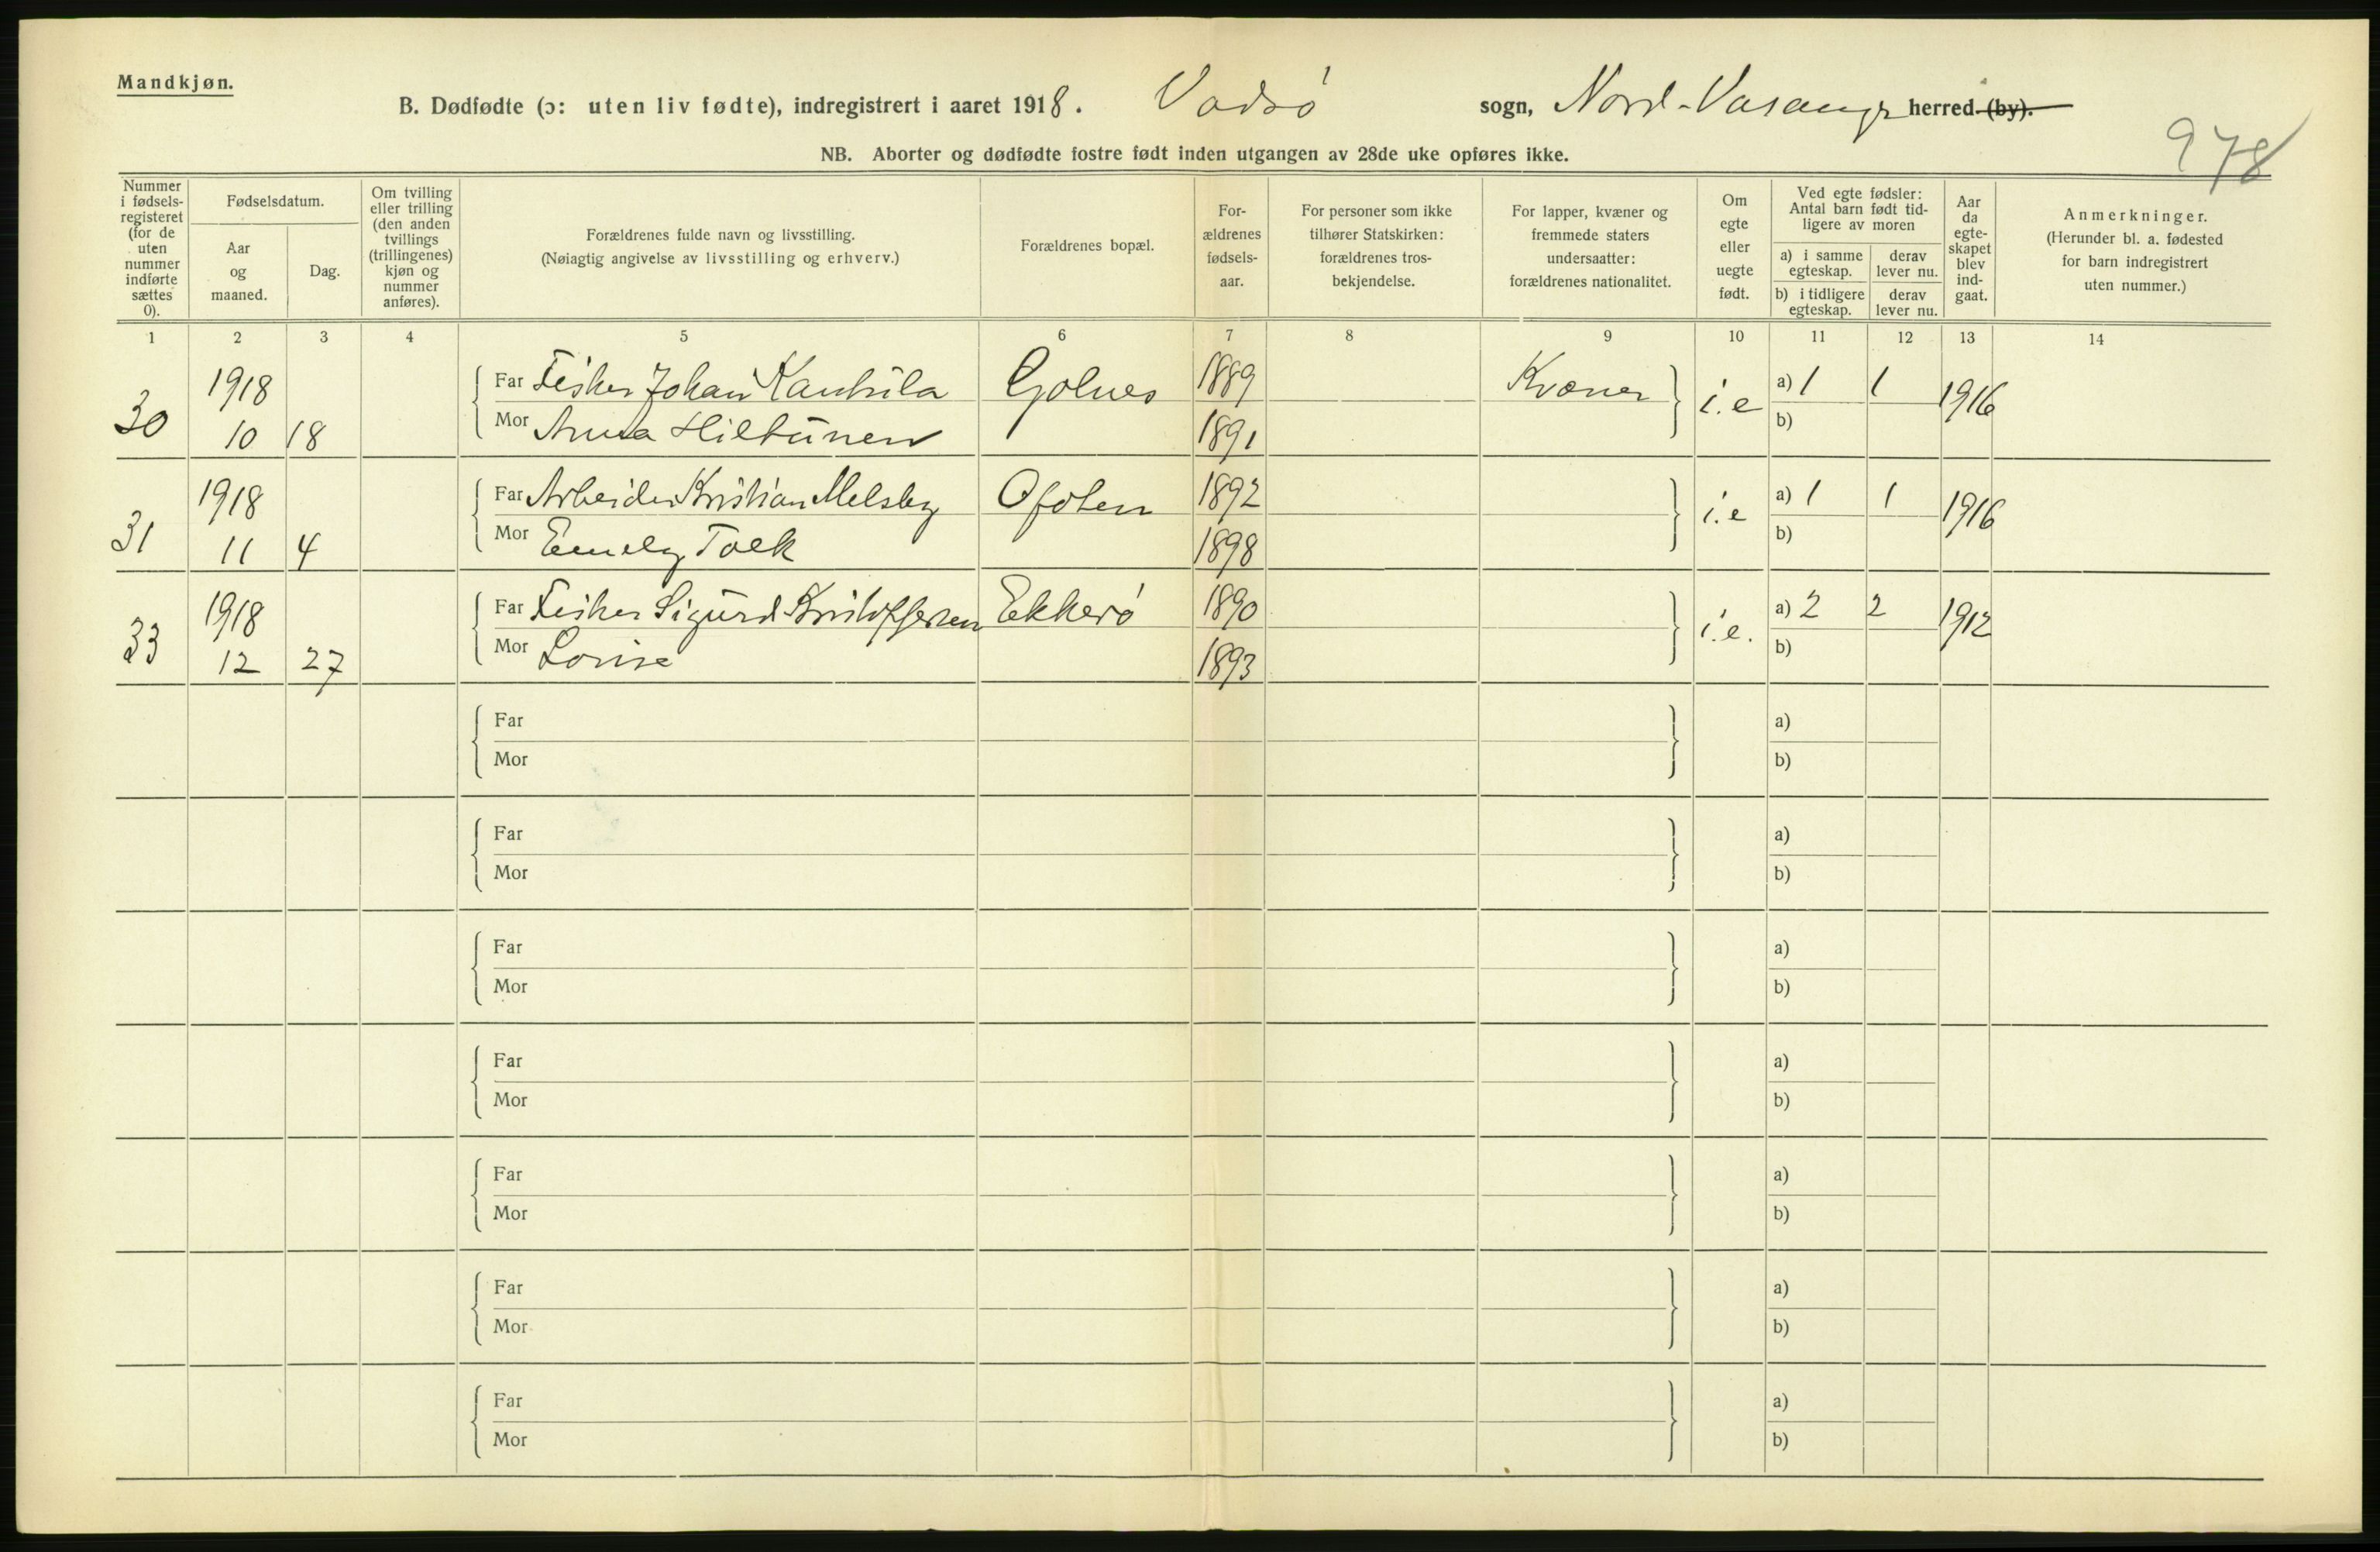 Mandkjøn.
B. Dødfødte (ɔ: uten liv fødte), indregistrert i aaret 1918. Vadsø sogn, Nord-Varanger herred (by).
978
NB. Aborter og dødfødte fostre født inden utgangen av 28de uke opføres ikke.
Nummer i fødsels-registeret (for de uten nummer indførte sættes 0).
Fødselsdatum.
Aar og maaned.
Dag.
Om tvilling eller trilling (den anden tvillings (trillingenes) kjøn og nummer anføres).
Forældrenes fulde navn og livsstilling.
(Nøiagtig angivelse av livsstilling og erhverv.)
Forældrenes bopæl.
For-ældrenes fødsels-aar.
For personer som ikke tilhører Statskirken: forældrenes tros-bekjendelse.
For lapper, kvæner og fremmede staters undersaatter: forældrenes nationalitet.
Om egte eller uegte født.
Ved egte fødsler: Antal barn født tid-ligere av moren
a) i samme egteskap.
derav lever nu.
b) i tidligere egteskap.
derav lever nu.
Aar da egte-skapet blev ind-gaat.
Anmerkninger.
(Herunder bl. a. fødested for barn indregistrert uten nummer.)
1 2 3 4 5 6 7 8 9 10 11 12 13 14
30 1918 10 18
Far Fisker Johan Kanhila Golnes 1889 Kvæner i.e a) 1 1 1916
Mor Anna Hiltunen 1891 b)
31 1918 11 4
Far Arbeider Kristian Melsby Ofoten 1892 i.e a) 1 1 1916
Mor Emely Tolk 1898 b)
33 1918 12 27
Far Fisker Sigurd Kristoffersen Ekkerø 1890 i.e. a) 2 2 1912
Mor Lovise 1893 b)
Far a)
Mor b)
Far a)
Mor b)
Far a)
Mor b)
Far a)
Mor b)
Far a)
Mor b)
Far a)
Mor b)
Far a)
Mor b)